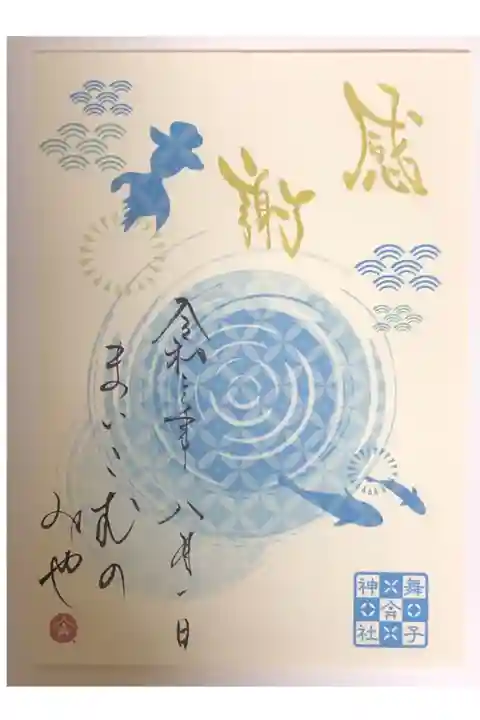 感
謝
令和三年八月一日
まいこむの
みや
舞子
神社